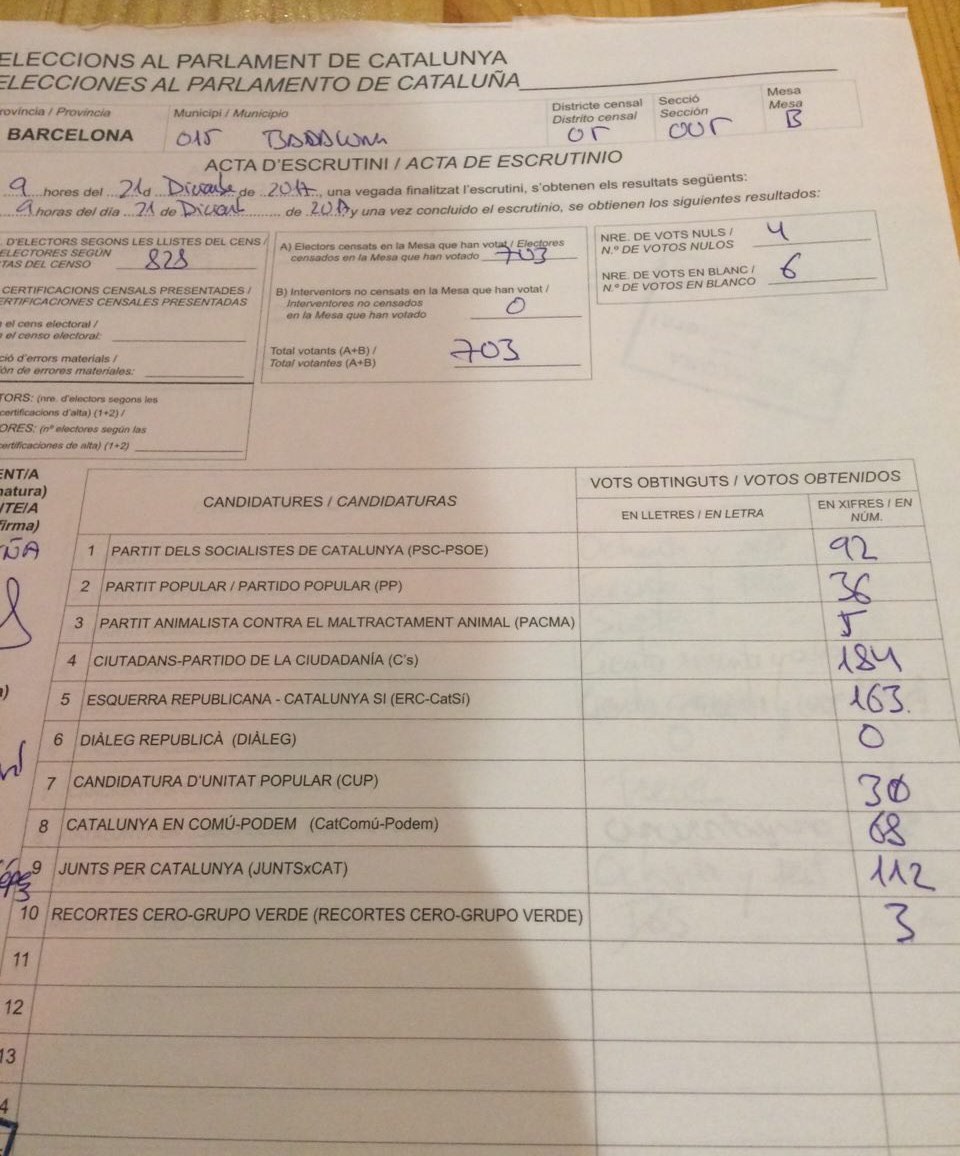 ELECCIONS AL PARLAMENT DE CATALUNYA
ELECCIONES AL PARLAMENTO DE CATALUÑA
rovíncia / Provincia
BARCELONA
Municipi / Municipio
015 BADALONA
Districte censal
Distrito censal
01
Secció
Sección
Mesa
Mesa
B
ACTA D'ESCRUTINI / ACTA DE ESCRUTINIO
9 hores del 21 d de 2017, una vegada finalitzat l'escrutini, s'obtenen els resultats següents:
9 horas del día 21 de de 2017 y una vez concluido el escrutinio, se obtienen los siguientes resultados:
. D'ELECTORS SEGONS LES LLISTES DEL CENS /
ELECTORES SEGÚN
TAS DEL CENSO 828
CERTIFICACIONS CENSALS PRESENTADES /
ERTIFICACIONES CENSALES PRESENTADAS
el cens electoral /
el censo electoral:
ció d'errors materials /
ión de errores materiales:
TORS: (nre. d'electors segons les
certificacions d'alta) (1+2) /
ORES: (nº electores según las
ertificaciones de alta) (1+2)
A) Electors censats en la Mesa que han votat / Electores
censados en la Mesa que han votado 703
B) Interventors no censats en la Mesa que han votat /
Interventores no censados
en la Mesa que han votado 0
Total votants (A+B) /
Total votantes (A+B) 703
NRE. DE VOTS NULS /
N.º DE VOTOS NULOS 4
NRE. DE VOTS EN BLANC /
N.º DE VOTOS EN BLANCO 6
ENT/A
natura)
NTE/A
firma)
CANDIDATURES / CANDIDATURAS
VOTS OBTINGUTS / VOTOS OBTENIDOS
EN LLETRES / EN LETRA
EN XIFRES / EN
NÚM.
1 PARTIT DELS SOCIALISTES DE CATALUNYA (PSC-PSOE) 92
2 PARTIT POPULAR / PARTIDO POPULAR (PP) 36
3 PARTIT ANIMALISTA CONTRA EL MALTRACTAMENT ANIMAL (PACMA) 5
4 CIUTADANS-PARTIDO DE LA CIUDADANÍA (C's) 184
5 ESQUERRA REPUBLICANA - CATALUNYA SI (ERC-CatSí) 163.
6 DIÀLEG REPUBLICÀ (DIÀLEG) 0
7 CANDIDATURA D'UNITAT POPULAR (CUP) 30
8 CATALUNYA EN COMÚ-PODEM (CatComú-Podem) 68
9 JUNTS PER CATALUNYA (JUNTSxCAT) 112
10 RECORTES CERO-GRUPO VERDE (RECORTES CERO-GRUPO VERDE) 3
11
12
13
4